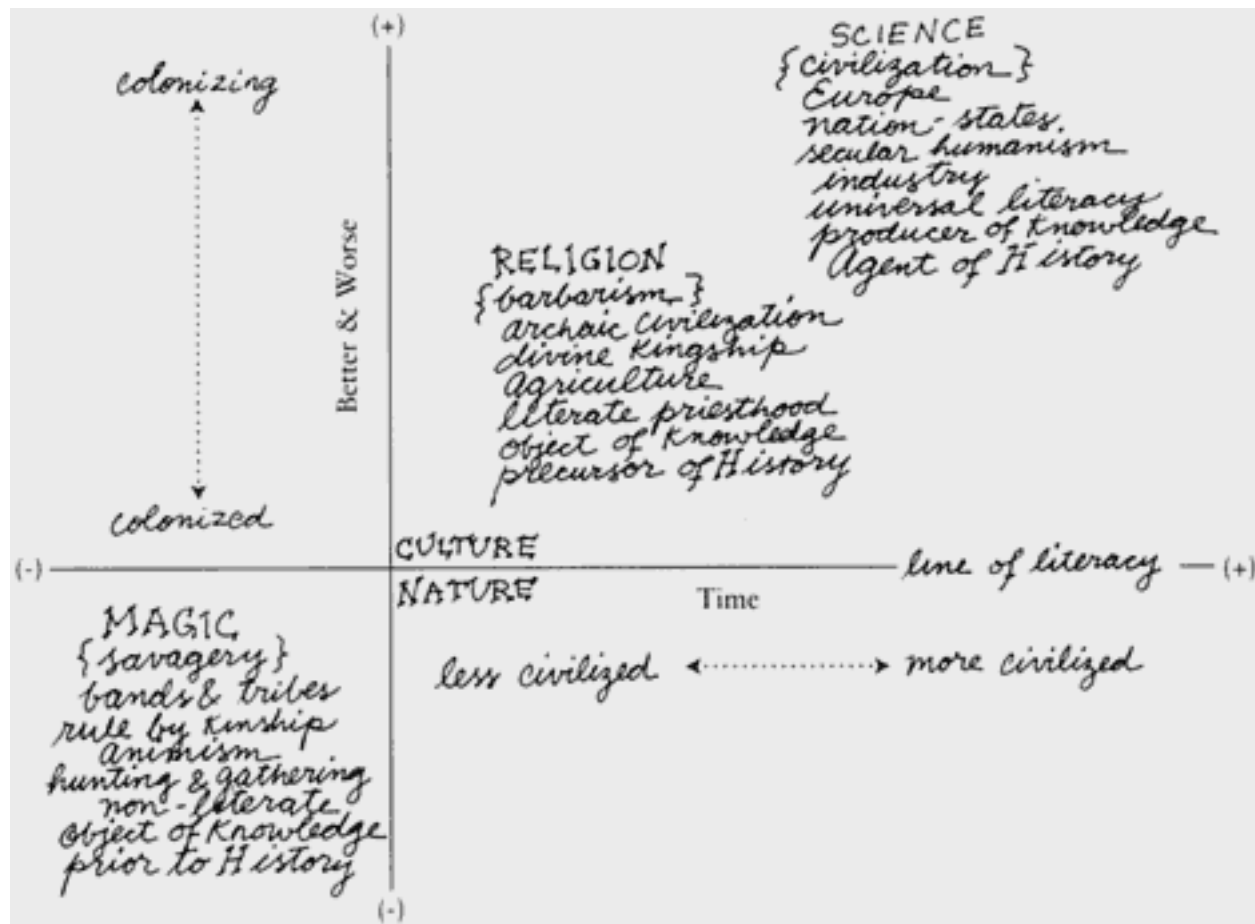 (+)
colonizing
colonized
Better & Worse
SCIENCE
{civilization}
Europe
nation-states.
secular humanism
industry
universal literacy
producer of Knowledge
Agent of History
RELIGION
{barbarism}
archaic Civilization
divine Kingship
Agriculture
literate priesthood
object of Knowledge
precursor of History
CULTURE
(-)
line of literacy
(+)
NATURE
Time
MAGIC
{savagery}
bands & tribes
rule by Kinship
animism
hunting & gathering
non-literate
object of Knowledge
prior to History
less civilized
more civilized
(-)